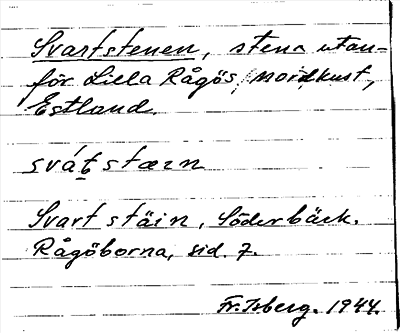 Svartstenen, stena utan-
för Lilla Rågös nordkust,
Estland.
svát̲stæın
Svart stäin, Söderbäck.
Rågöborna, sid. 7.
Fr. Isberg. 1944.